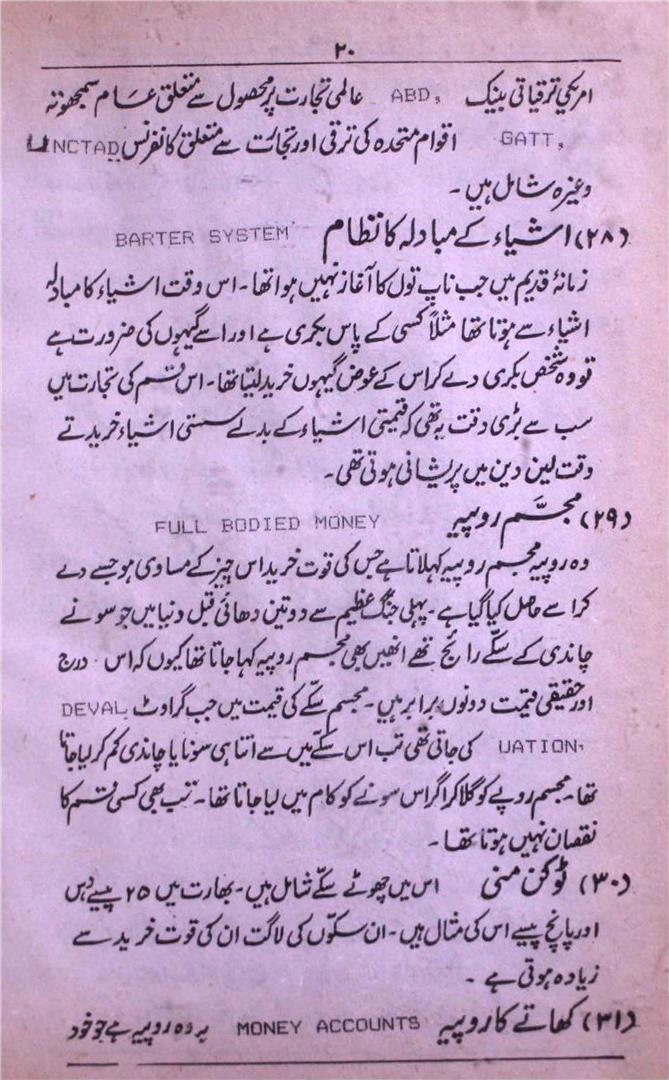 ۲۰
امریکی ترقیاتی بینک ABD, عالمی تجارت پر محصول سے متعلق عام سمجھوتہ
GATT, اقوام متحدہ کی ترقی اور تجارت سے متعلق کانفرنس UNCTAD
وغیرہ شامل ہیں۔
(۲۸) اشیاء کے مبادلہ کا نظام BARTER SYSTEM
زمانۂ قدیم میں جب ناپ تول کا آغاز نہیں ہوا تھا۔ اس وقت اشیاء کا مبادلہ
اشیاء سے ہوتا تھا مثلاً کسی کے پاس بکری ہے اور اسے گیہوں کی ضرورت ہے
تو وہ شخص بکری دے کر اس کے عوض گیہوں خرید لیتا تھا۔ اس قسم کی تجارت میں
سب سے بڑی دقت یہ تھی کہ قیمتی اشیاء کے بدلے سستی اشیاء خریدتے
وقت لین دین میں پریشانی ہوتی تھی۔
(۲۹) مجسّم روپیہ FULL BODIED MONEY
وہ روپیہ مجسم روپیہ کہلاتا ہے جس کی قوت خرید اس چیز کے مساوی ہو جسے دے
کر اسے حاصل کیا گیا ہے۔ پہلی جنگ عظیم سے دو تین دھائی قبل دنیا میں جو سونے
چاندی کے سکّے رائج تھے انھیں بھی مجسم روپیہ کہا جاتا تھا کیوں کہ اس درج
اور حقیقی قیمت دونوں برابر ہیں۔ مجسم سکّے کی قیمت میں جب گراوٹ DEVAL
UATION, کی جاتی تھی تب اس سکّے میں سے اتنا ہی سونا یا چاندی کم کر لیا جاتا
تھا۔ مجسم روپے کو گلا کر اگر اس سونے کو کام میں لیا جاتا تھا۔ تب بھی کسی قسم کا
نقصان نہیں ہوتا تھا۔
(۳۰) ٹوکن منی اس میں چھوٹے سکّے شامل ہیں۔ بھارت میں ۲۵ پیسے دس
اور پانچ پیسے اس کی مثال ہیں۔ ان سکّوں کی لاگت ان کی قوت خرید سے
زیادہ ہوتی ہے۔
(۳۱) کھاتے کا روپیہ MONEY ACCOUNTS یہ وہ روپیہ ہے جو خود